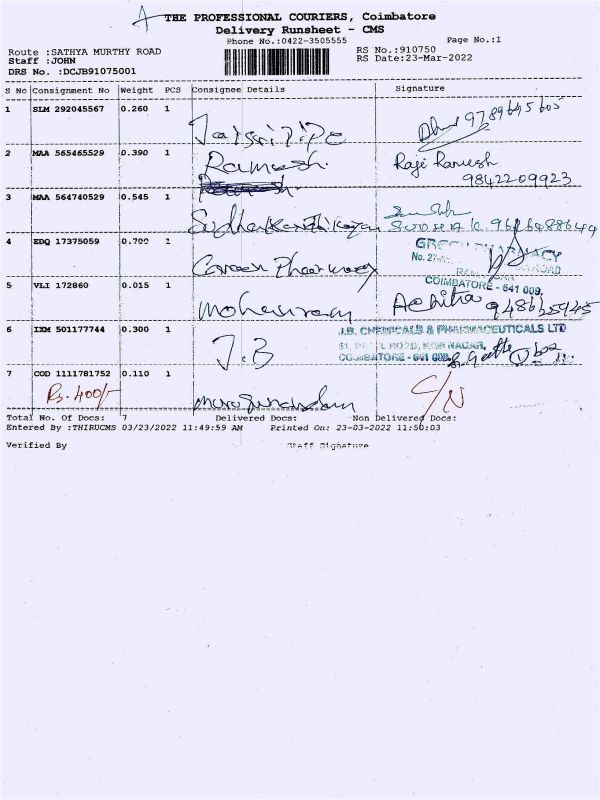 THE PROFESSIONAL COURIERS, Coimbatore
Delivery Runsheet - CMS
Phone No.:0422-3505555
Page No.:1
Route :SATHYA MURTHY ROAD
RS No.:910750
Staff :JOHN
RS Date:23-Mar-2022
DRS No. :DCJB91075001
S No Consignment No Weight PCS Consignee Details Signature
1 SLM 292045567 0.260 1
2 MAA 565465529 0.390 1 Ramesh. Raji Ramesh
9842209923
3 MAA 564740529 0.545 1
4 EDQ 17375059 0.700 1 Green Pharmacy GREEN PHARMACY
COIMBATORE - 641 009.
5 VLI 172860 0.015 1 Mohanram
6 IXM 501177744 0.300 1 J.B J.B. CHEMICALS & PHARMACEUTICALS LTD
NAGAR,
COIMBATORE - 641 009.
7 COD 1111781752 0.110 1 C/N
Rs. 400/-
Total No. Of Docs: 7 Delivered Docs: Non Delivered Docs:
Entered By :THIRUCMS 03/23/2022 11:49:59 AM Printed On: 23-03-2022 11:50:03
Verified By Staff Signature